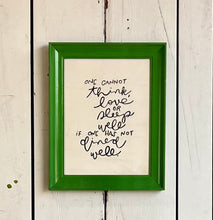 ONE CANNOT
think,
love
OR
sleep
well
IF ONE HAS NOT
dined
well.